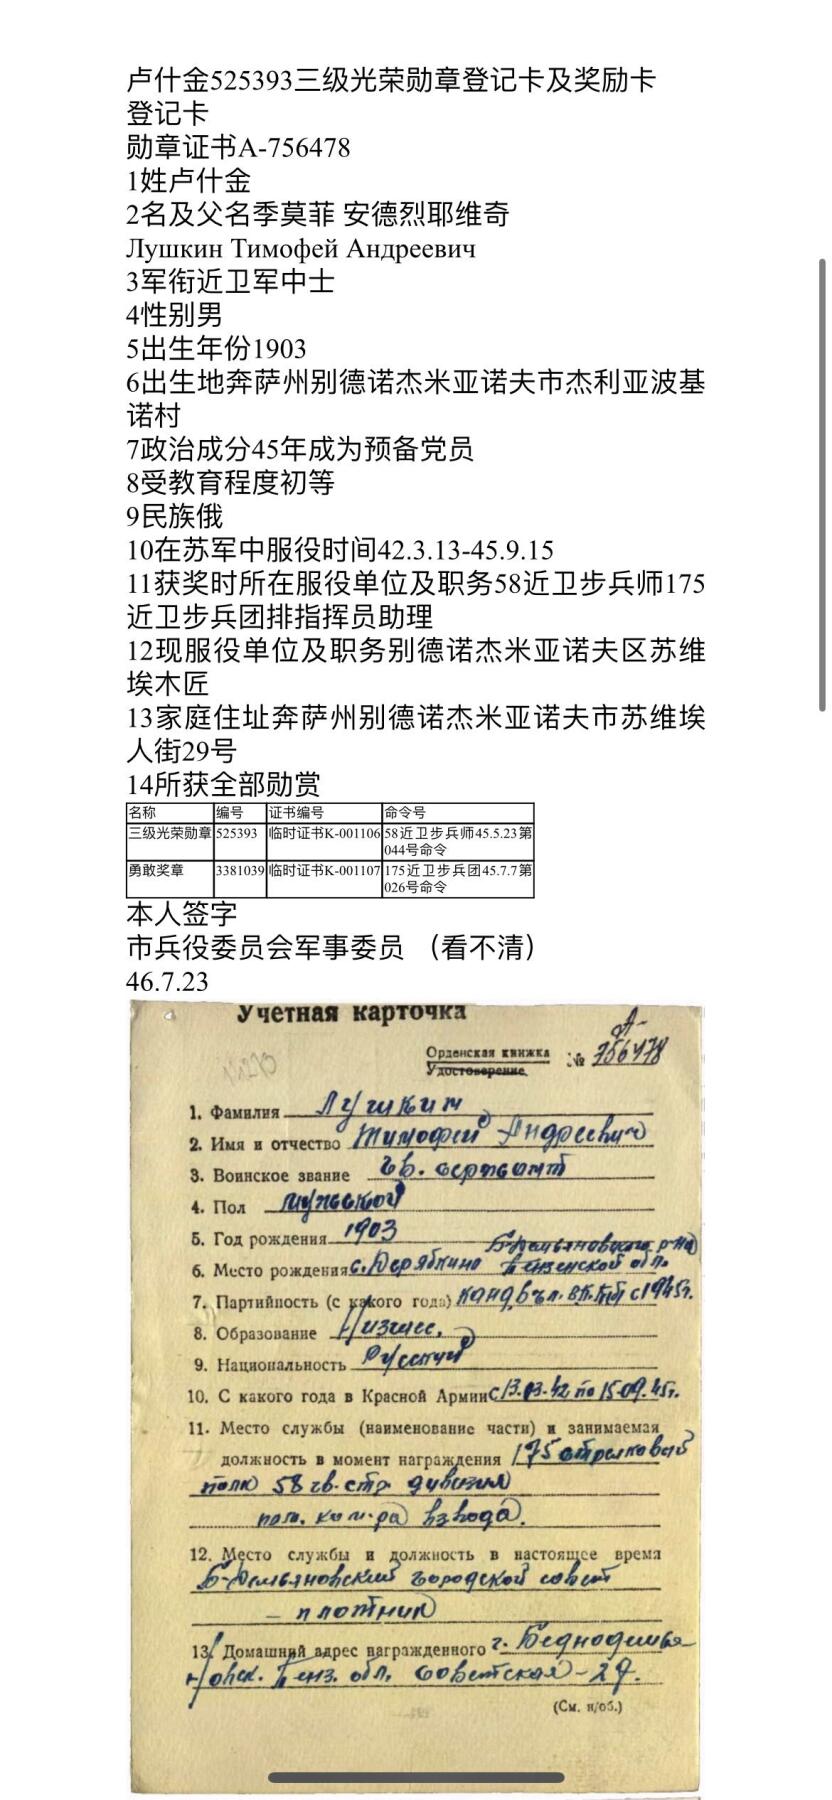 卢什金525393三级光荣勋章登记卡及奖励卡
登记卡
勋章证书A-756478
1姓卢什金
2名及父名季莫菲 安德烈耶维奇
Лушкин Тимофей Андреевич
3军衔近卫军中士
4性别男
5出生年份1903
6出生地奔萨州别德诺杰米亚诺夫市杰利亚波基
诺村
7政治成分45年成为预备党员
8受教育程度初等
9民族俄
10在苏军中服役时间42.3.13-45.9.15
11获奖时所在服役单位及职务58近卫步兵师175
近卫步兵团排指挥员助理
12现服役单位及职务别德诺杰米亚诺夫区苏维
埃木匠
13家庭住址奔萨州别德诺杰米亚诺夫市苏维埃
人街29号
14所获全部勋赏
名称 编号 证书编号 命令号
三级光荣勋章 525393 临时证书K-001106 58近卫步兵师45.5.23第
044号命令
勇敢奖章 3381039 临时证书K-001107 175近卫步兵团45.7.7第
026号命令
本人签字
市兵役委员会军事委员 （看不清）
46.7.23
Учетная карточка
Орденская книжка № А-756478
Удостоверение
1. Фамилия Лушкин
2. Имя и отчество Тимофей Андреевич
3. Воинское звание гв. сержант
4. Пол мужской
5. Год рождения 1903
6. Место рождения с. Дерябкино Б-Демьяновского р-на Пензенской обл.
7. Партийность (с какого года) канд. в чл. ВКП(б) с 1945г.
8. Образование Низшее.
9. Национальность Русский
10. С какого года в Красной Армии с 13.03.42 по 15.09.45г.
11. Место службы (наименование части) и занимаемая
должность в момент награждения 175 стрелковый
полк 58 гв. стр. дивизия
пом. ком-ра взвода.
12. Место службы и должность в настоящее время
Б-Демьяновский городской совет
- плотник
13. Домашний адрес награжденного г. Беднодемья-
новск. Пенз. обл. Советская-29.
(См. н/об.)